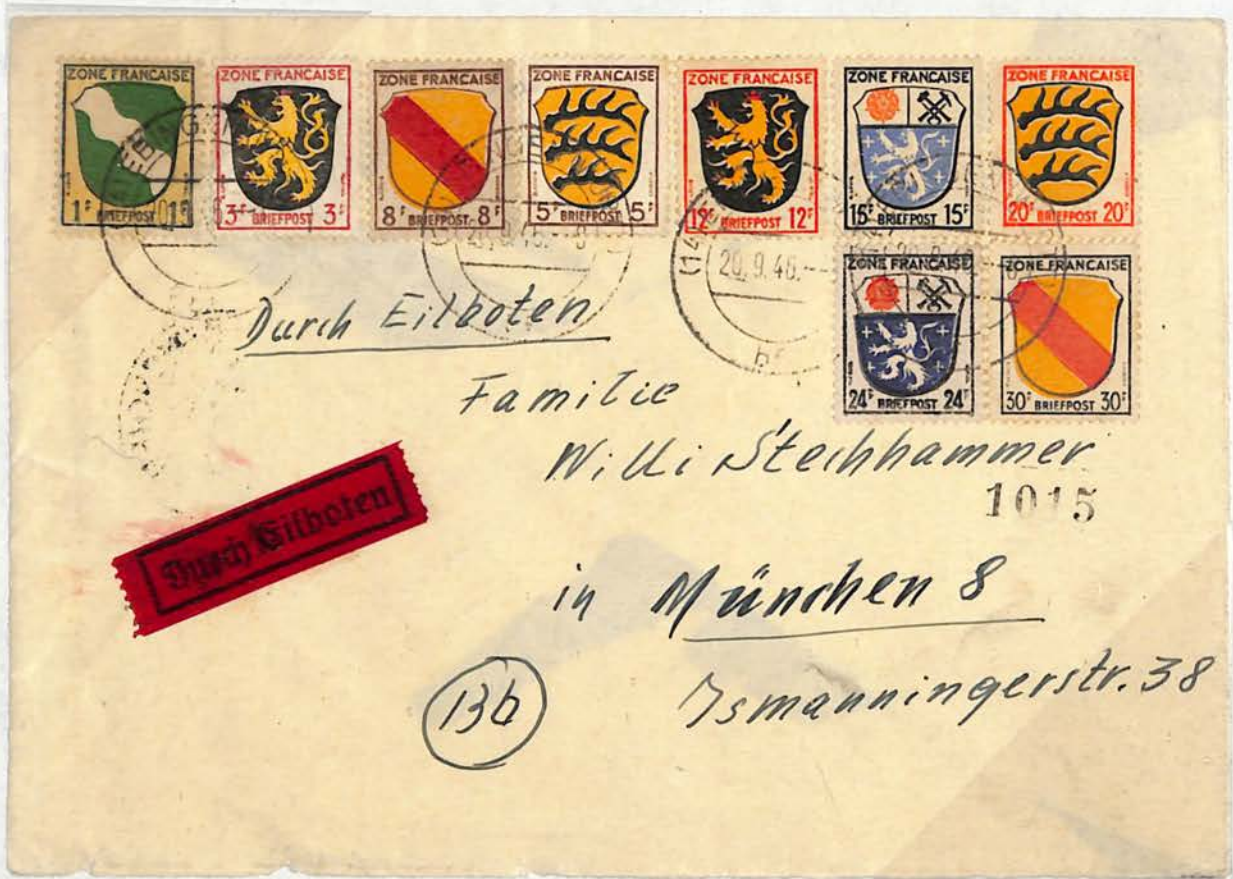 ZONE FRANCAISE
1F BRIEFPOST 1F
ZONE FRANCAISE
3F BRIEFPOST 3F
ZONE FRANCAISE
8F BRIEFPOST 8F
ZONE FRANCAISE
5F BRIEFPOST 5F
ZONE FRANCAISE
12F BRIEFPOST 12F
ZONE FRANCAISE
15F BRIEFPOST 15F
ZONE FRANCAISE
20F BRIEFPOST 20F
ZONE FRANCAISE
24F BRIEFPOST 24F
ZONE FRANCAISE
30F BRIEFPOST 30F
20.9.46.
Durch Eilboten
Familie
Willi Stechhammer
1015
Durch Eilboten
in München 8
13b
Ismanningerstr. 38